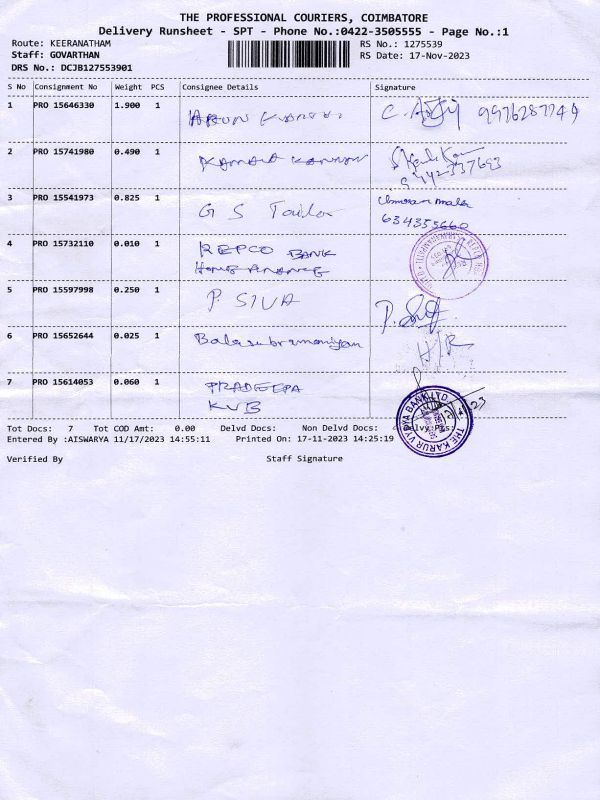 THE PROFESSIONAL COURIERS, COIMBATORE
Delivery Runsheet - SPT - Phone No.:0422-3505555 - Page No.:1
Route: KEERANATHAM
RS No.: 1275539
Staff: GOVARTHAN
RS Date: 17-Nov-2023
DRS No.: DCJB127553901
S No Consignment No Weight PCS Consignee Details Signature
1 PRO 15646330 1.900 1 ARUN
9976287749
2 PRO 15741980 0.490 1 KAMALA KANNAN
3 PRO 15541973 0.825 1 G S Tailor
634355660
4 PRO 15732110 0.010 1 REPCO BANK
HOME FINANCE
5 PRO 15597998 0.250 1 P. SIVA
6 PRO 15652644 0.025 1 Balasubramaniyan
7 PRO 15614053 0.060 1 PRADEEPA
KVB
THE KARUR VYSYA BANK LTD.
Tot Docs: 7 Tot COD Amt: 0.00 Delvd Docs: Non Delvd Docs:
Entered By :AISWARYA 11/17/2023 14:55:11 Printed On: 17-11-2023 14:25:19
Verified By Staff Signature